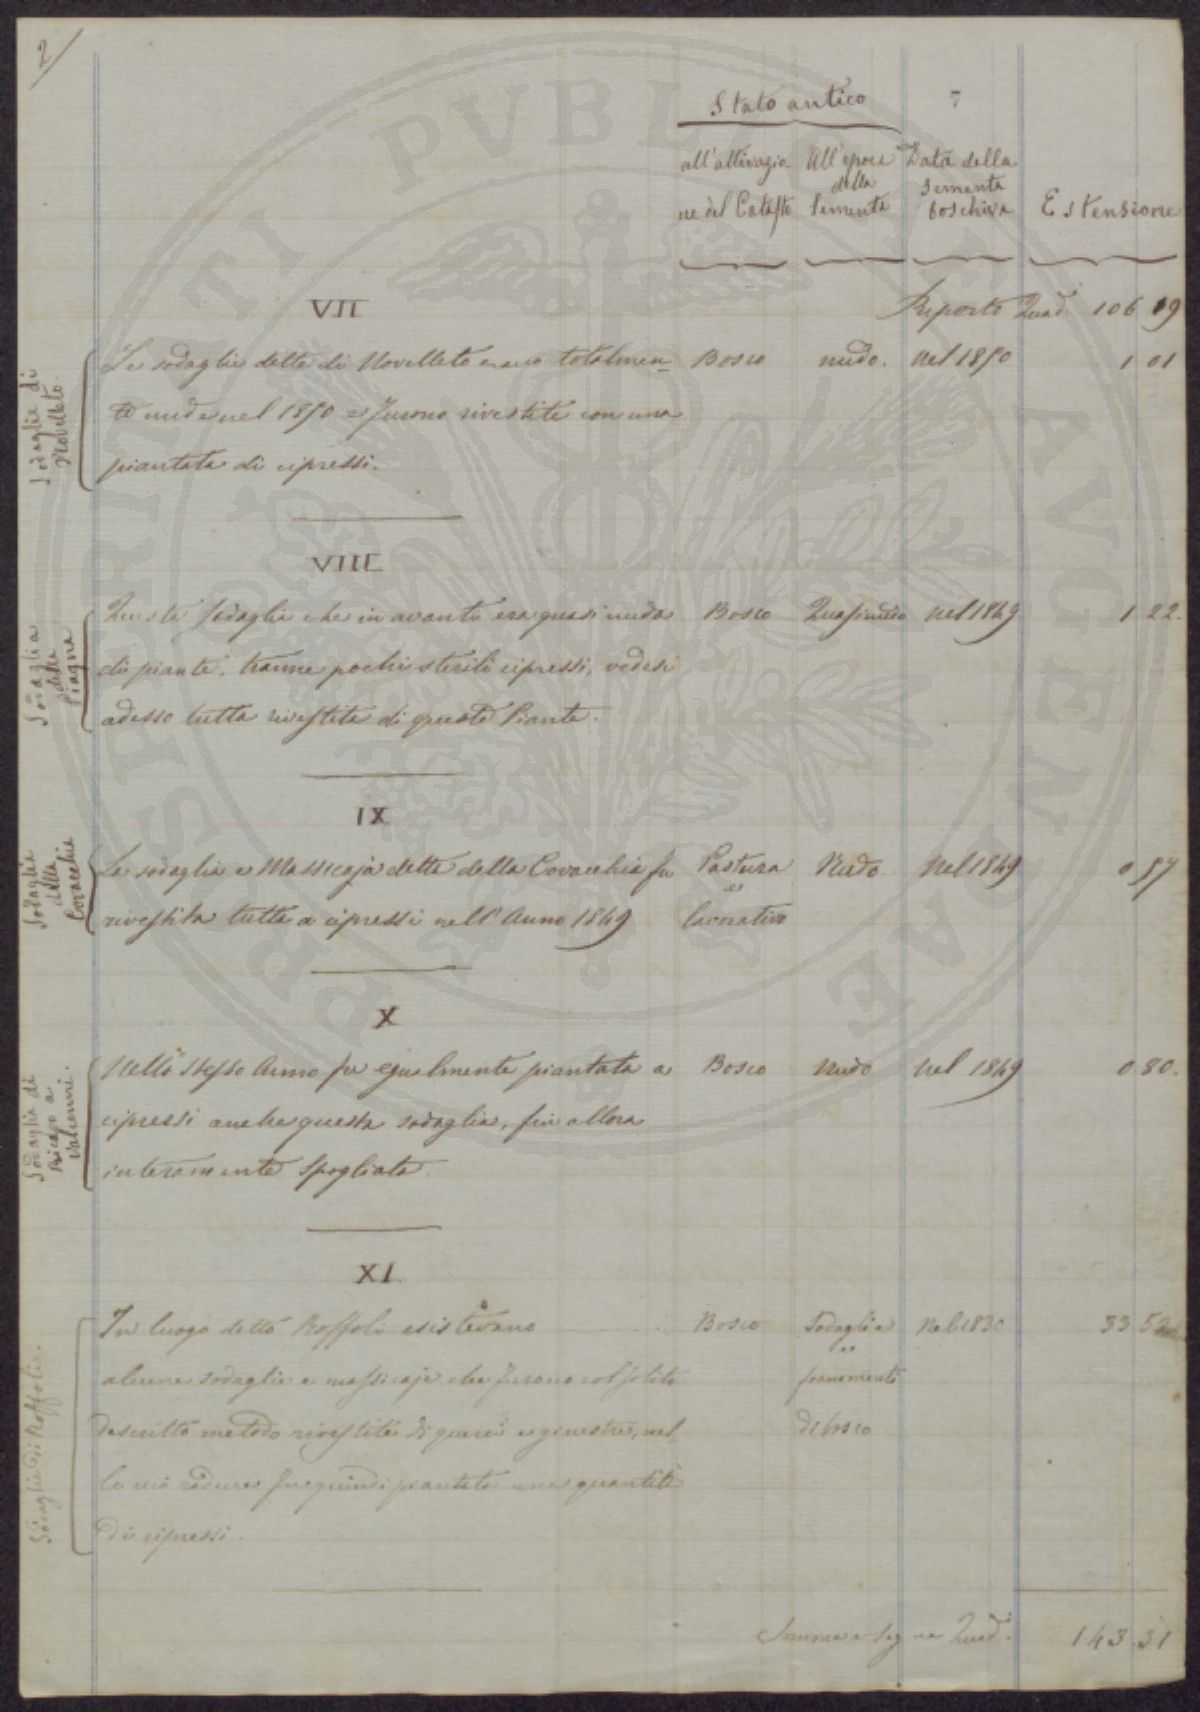 2/
Stato antico
7
all'attivazio-
ne del Catasto
All'epoca
della
Sementa
Data della
Sementa
boschiva
Estensione
Riporto Quad.i 106 09
VII
Sodaglie di
Novelleto.
Le sodaglie dette di Novelleto erano totalmen=
te nude nel 1850 e furono rivestite con una
piantata di cipressi.
Bosco nudo. nel 1850 1 01
VIII
Sodaglia
delle
Piagne
Questa sodaglia che in avanti era quasi nuda
di piante, tranne pochi sterili cipressi, vedesi
adesso tutta rivestita di queste Piante.
Bosco Quasi nudo nel 1849 1 22.
IX
Sodaglia
della
Covacchia
La sodaglia e Massicaja detta della Covacchia fu
rivestita tutta a cipressi nell'Anno 1849
Pastura
e
lavorativo
Nudo. Nel 1849 0 57
X
Sodaglia di
a
Nello stesso Anno fu egualmente piantata a
cipressi anche questa sodaglia, fin allora
interamente spogliata.
Bosco nudo nel 1849 0 80.
XI.
Sodaglie di Roffoli.
In luogo detto Roffoli esistevano
alcune sodaglie e massicaje che furono col solito
descritto metodo rivestite di querci e ginestre, nel
le cui radure fu quindi piantata una quantità
di cipressi.
Bosco Sodaglia
e
fornimento
di bosco
Nel 1830 33 52
Somma e segue Quad.i 143.31
PVBLICAE